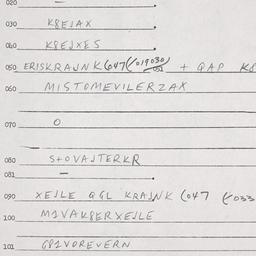 020 —
030 K8EJAX
040 K8EJXES
050 ERISKRAJNK647(019030) + QAP K8
031
060 MISTOMEVILERZAX
070 O
080 S+OVAJTERKR
081 —
090 XEJLE QGL KRAJNK (047 (033
100 M1VAK8ERXEJLE
101 G81VOREVERN